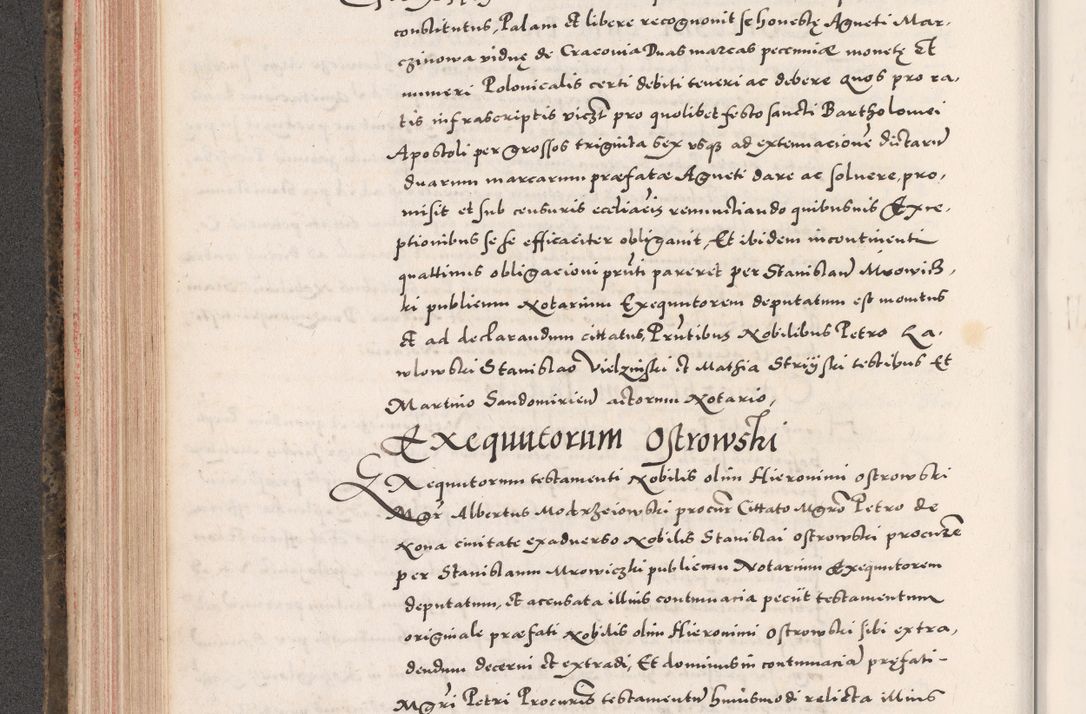 constitutus, Palam et libere recognovit se honestę Agneti Mar,
czinowa viduę de Cracovia Duas marcas pecuniæ monetę Et
numeri Polonicalis certi debiti teneri ac debere quos pro ra,
tis infrascriptis viczt pro quolibet festo sancti Bartholomei
Apostoli per grossos triginta sex usqz ad extenuacione dictaru
duarum marcarum præfatæ Agneti dare ac solvere, pro,
misit et sub censuris eccliaeis renunctiando quibusvis Exce,
ptionibus sese efficaciter obligavit, Et ibidem incontinenti
quattinus obligacioni pruti pareret per Stanislau Mrowicz,
ki publicum Notarium Exequutorem deputatum est monitus
et ad declarandum cittatus, Prutibus Nobilibus Petro La,
wlowski Stanislao Vielziuski et Mathia Stryiski testibus Et
Martino Sandomirien actorum Notario,
Exequutorum Ostrowski
Exequutorum testamenti Nobilis olim Hieronimi Ostrowski
Mgr Albertus Modrzeiowski procur Cittato Mgro Petro de
Kona civitate exadverso Nobilis Stanislai Ostrowski procure
per Stanislaum Mrowiczki publicum Notarium Exequutorem
deputatum, et accusata illius contumacia peciit testamentum
originale præfati Nobilis olim Hieronimi Ostrowski sibi extra,
dendum decerni et extradi, Et dominus in contumacia pręfati
Mgri Petri Procuris testamentu huiusmodi relicta illius